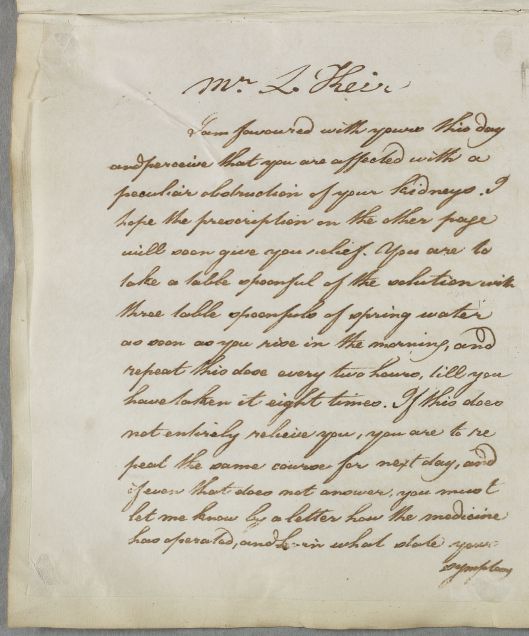 Mr. L. Keir
I am favoured with yours this day
and perceive that you are affected with a
peculiar obstruction of your Kidneys. I
hope the prescription on the other page
will soon give you relief. You are to
take a table spoonful of the solution with
three table spoonfuls of spring water
as soon as you rise in the morning, and
repeat this dose every two hours, till you
have taken it eight times. If this does
not entirely relieve you, you are to re
peat the same course for next day, and
if even that does not answer, you must
let me know by a letter how the medicine
has operated, and in what state your
symptoms